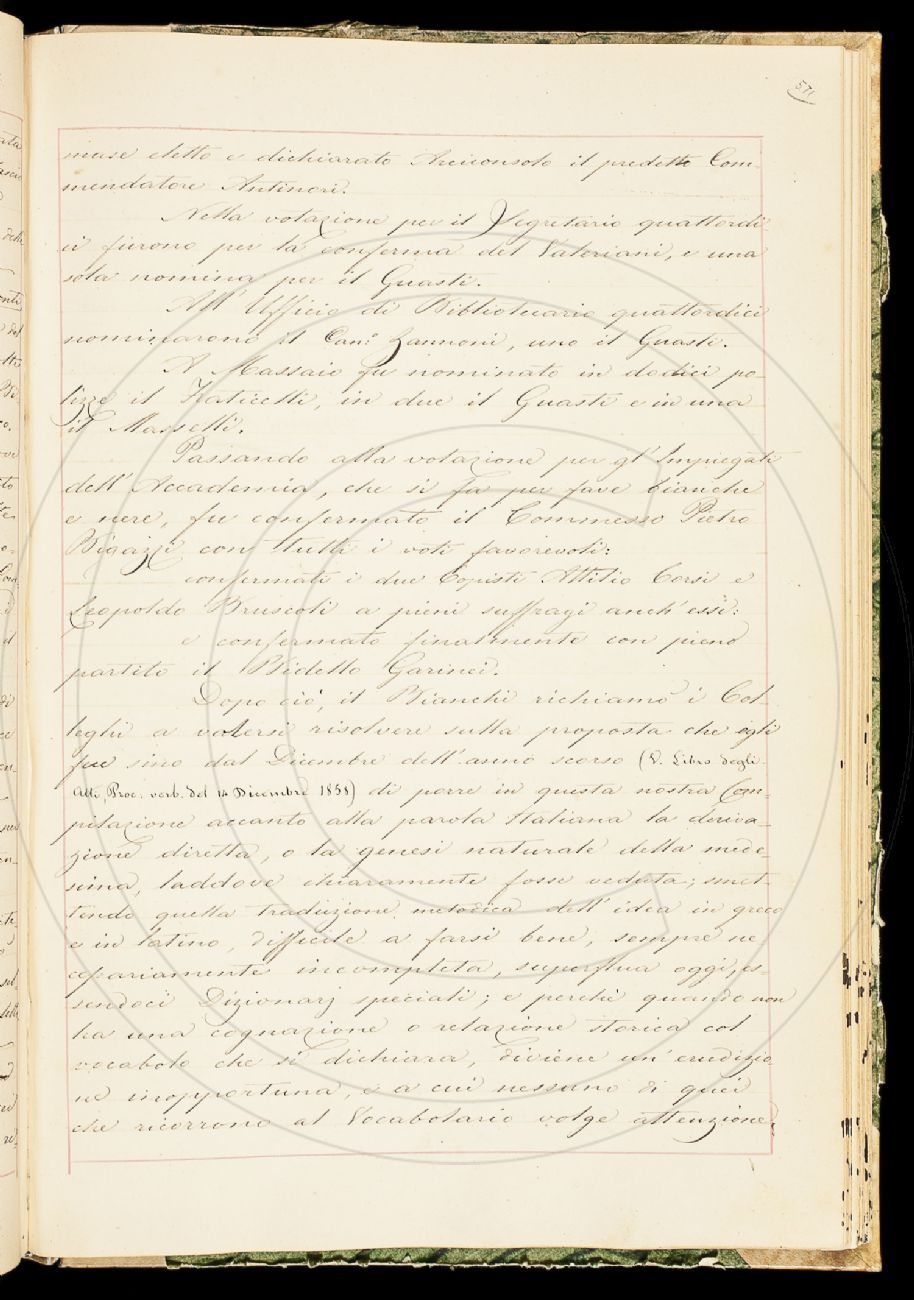 571
mase eletto e dichiarato Arciconsolo il predetto Com-
mendatore Antinori.
Nella votazione per il Segretario quattordi
ci furono per la conferma del Valeriani, e una
sola nomina per il Guasti.
All' Ufficio di Bibliotecario quattordici
nominarono il Can: Zannoni, uno il Guasti.
A Massaio fu nominato in dodici po-
lizze il Faticelli, in due il Guasti e in una
il Masselli.
Passando alla votazione per gl' Impiegati
dell' Accademia, che si fa per fave bianche
e nere, fu confermato il Commesso Pietro
Bigazzi con tutti i voti favorevoli:
confermati i due Copisti Attilio Corsi e
Leopoldo Bruscoli a pieni suffragi anch' essi:
e confermato finalmente con pieno
partito il Bidello Garinei.
Dopo ciò, il Bianchi richiamò i Col-
leghi a volersi risolvere sulla proposta che egli
feu sino dal Dicembre dell' anno scorso (V. Libro degli
Atti, Proc: verb. del 14 Dicembre 1858) di porre in questa nostra Com-
pilazione accanto alla parola Italiana la deriva-
zione diretta, o la genesi naturale della mede-
sima, laddove chiaramente fosse veduta; smet-
tendo quella traduzione metodica dell' idea in greco
e in latino, difficile a farsi bene, sempre ne-
cessariamente incompleta, superflua oggi, es-
sendoci Dizionarj speciali; e perchè quando non
ha una cognazione o relazione storica col
vocabolo che si dichiara, diviene un' erudizio-
ne inopportuna, e a cui nessuno di quei
che ricorrono al Vocabolario volge attenzione,